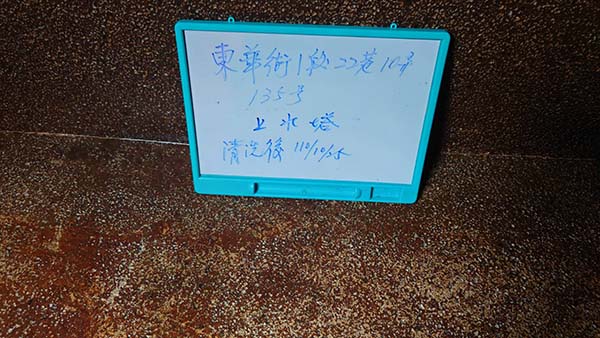 東華街1段22巷10弄
135号
上水塔
清洗後 110/10/25